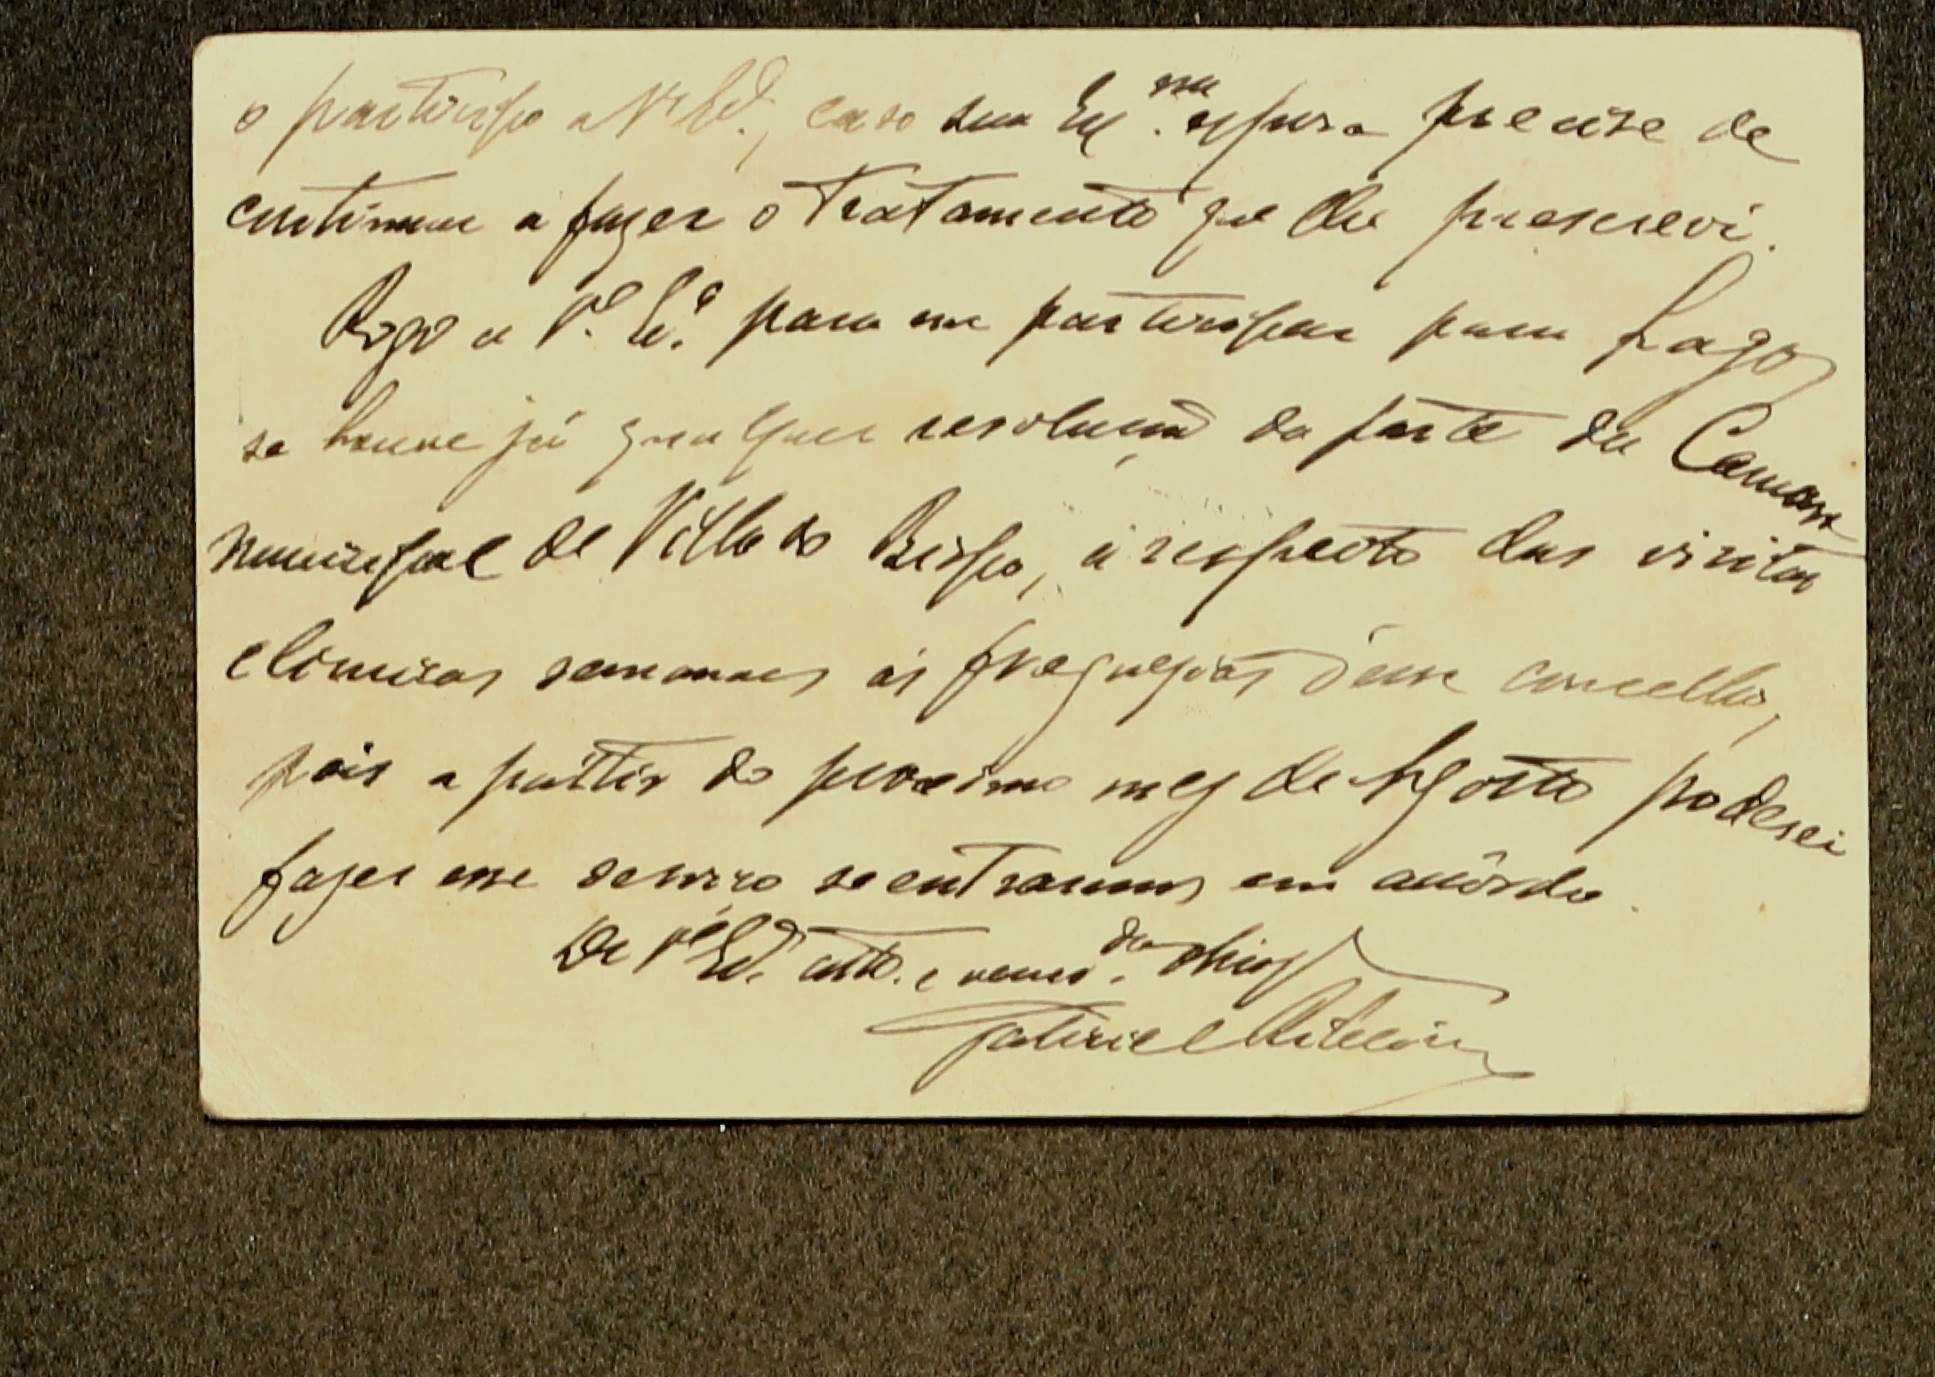 o participo a V. Ex.ª, caso sua Ex.ma esposa precise de
continuar a fazer o tratamento que lhe prescrevi.
Rogo a V.ª Ex.ª para me participar para Lagos
se houve já qualquer resolução da parte da Camara
Municipal de Villa do Bispo, a respeito das visitas
clinicas semanaes ás freguezias d'esse concelho,
pois a partir do proximo mez de Agosto poderei
fazer esse serviço se entrarmos em acôrdo.
De V.ª Ex.ª att.º e vener.dor obrig.
Gabriel